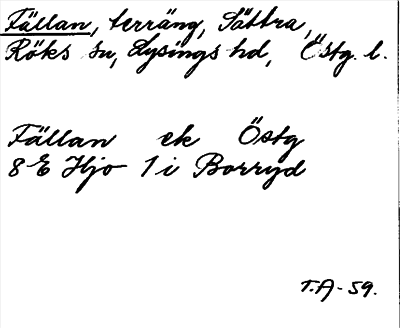 Fällan, terräng, Sättra,
Röks sn, Lysings hd, Östg. l.
Fällan ek Östg
8 E Hjo 1 i Borryd
T.A-59.